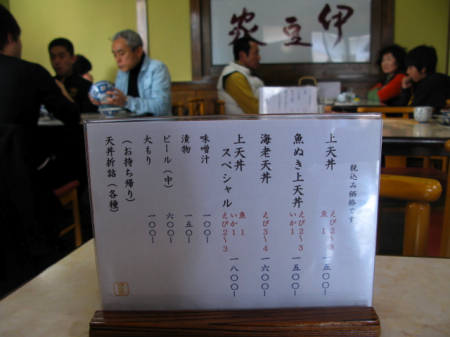 伊豆家
税込み価格です
上天丼
えび2〜3
魚 1
一五〇〇ー
魚ぬき上天丼
えび2〜3
いか1
一五〇〇ー
海老天丼
えび3〜4
一六〇〇ー
上天丼
スペシャル
魚 1
いか1
えび2〜3
一八〇〇ー
味噌汁
一〇〇ー
漬物
一五〇ー
ビール(中)
六〇〇ー
大もり
一〇〇ー
(お持ち帰り)
天丼折詰(各種)